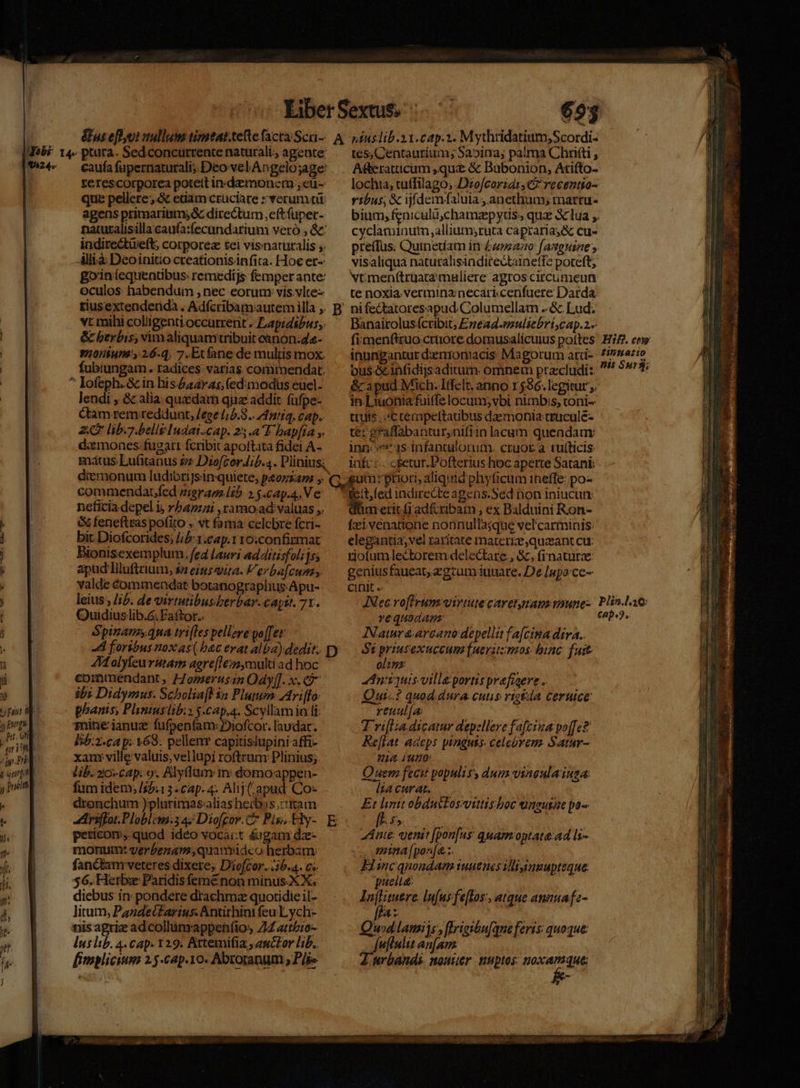 Liber Sextus. 693
Iobi 14.
v. 24.
ptura. Sed concurrente naturali, agente
causa supernaturali, Deo vel Angelo, age
re res corporea potest in dæmonem, eum-
que pellere, & etiam cruciare: verum tũ
agens primarium, & directum, est super-
naturalis illa causa: secundarium verò, &
indirectũ est, corporeæ rei vis naturalis,
illi à Deo initio creationis insita. Hoc er-
go in sequentibus remedijs semper ante
oculos habendum, nec eorum vis vlte-
rius extendenda. Adscribam autem illa,
vt mihi colligenti occurrent. Lapidibus,
& herbis, vim aliquam tribuit canon. dæ-
monium, 26. q. 7. Et sane de multis mox
subiungam. radices varias commendat
Ioseph. & in his baaras, sed modus euel-
lendi, & alia quædam quæ addit supse-
ctam rem reddunt, lege lib. 8. Antiq. cap.
2. & lib. 7. belli Iudai. cap. 25. a T bapsia,
dæmones fugari scribit apostata fidei A-
matus Lusitanus in Dioscor. lib. 4. Plinius,
dæmonum ludibrijs in quiete, pæoniam,
commendat, sed nigram lib. 25. cap. 4. Ve
neficia depelli, rhamni, ramo ad valuas,
& fenestras posito, vt fama celebre scri-
bit Dioscorides, lib. 1. cap. 110. confirmat
Bionis exemplum, sed lauri additis folijs,
apud Illustrium, in eius vita. Verbascum,
valde commendat botanographus Apu-
leius, lib. de virtutibus herbar. capit. 71.
Ouidius lib. 6. Fastor.
Spinam, qua tristes pellere posset
A foribus noxas (hæc erat alba) dedit.
Molyseu rutam agrestem, multi ad hoc
commendant, Homerus in Odyss. x. &
ibi Didymus. Scholiast. in Plutum Aristo
phanis, Plinius lib. 25. cap. 4. Scyllam in li
mine ianuæ suspensam: Dioscor. laudat.
lib. 2. cap. 168. pellem capitis lupini affi-
xam villę valuis, vel lupi rostrum Plinius,
lib. 20. cap. 9. Alyssum in domo appen-
sum idem, lib. 13. cap. 4. Alij (apud Co-
dronchum) plurimas alias herbas, rutam
Aristot. Problem. 34. Dioscor. & Plin. Hy-
pericon, quod ideo vocant fugam dæ-
monum: verbenam, quam ideo herbam
sanctam veteres dixere, Dioscor. lib. 4. c.
56. Herbæ Paridis semẽ non minus XX.
diebus in pondere drachmæ quotidie il-
litum, Pandectarius. Antirhini seu Lych-
nis agriæ ad collum appensio, Matthio-
lus lib. 4. cap. 129. Artemisia, auctor lib.
simplicium 25. cap. 10. Abrotanum, Pli-
A nius lib. 21. cap. 1. Mythridatium, Scordi-
tes, Centaurium, Sabina, palma Christi,
Asteratticum, quæ & Bubonion, Aristo-
lochia, tussilago, Dioscorides, & recentio-
ribus, & ijsdem salvia, anethum, marru-
bium, feniculũ, chamæpytis, quæ & Iua,
cyclaminum, allium, ruta capraria, & cu-
pressus. Quinetiam in humano sanguine,
vis aliqua naturalis indirecta inesse potest,
vt menstruatæ muliere agros circumeun
te noxia vermina necari censuere Darda
B ni sectatores apud Columellam. & Lud.
Banairolus scribit, Enead. muliebri, cap. 2.
si menstruo cruore domus alicuius postes
inungantur dæmoniacis Magorum arti-
bus & insidijs aditum omnem præcludi:
& apud Mich. Isselt, anno 1586. legitur,
in Liuonia fuisse locum, vbi nimbis, toni-
truis, & tempestatibus dæmonia truculē-
ter grassabantur, nisi in lacum quendam
is infantulorum cruor a rusticis
Posterius hoc aperte Satani:
C priori, aliquid physicum inesse po-
test, sed indirecte agens. Sed non iniucun
dum erit si adscribam, ex Balduini Ron-
sæi venatione nonnulla, quæ vel carminis
elegantia, vel raritate materiæ, queant cu
riosum lectorem delectare, &, si naturæ
genius faueat, ægrum iuuare. De lupo ce-
cinit.
Hist. con
tinuatio
nis Surij.
Plin. l. 20.
cap. 9.
Nec rostrum virtute caret, nam mune-
re quodam
Naturæ arcano depellit fascina dira.
D Si prius exuccum fuerit: mos hinc fuit
olim
Antiquis villæ portis præfigere.
Qui..? quod dura cutis rigida ceruice
reuulsa
Tristia dicatur depellere fascina posse?
Restat adeps pinguis. celebrem Satur-
nia Iuno
Quem fecit populis, dum vincula iuga-
lia curat.
Et linit obductos vittis hoc unguine po-
E stes,
Ante venit sponsus quam optata ad li-
mina sponsæ:
Hinc quondam iuuenes illi, innuptæque
puellæ
Instituere lusus festos, atque annua fe-
sta:
Quod lamijs, strigibusque feris quoque
sustulit ansam
Turbandi nouiter nuptos. noxamque
fe-